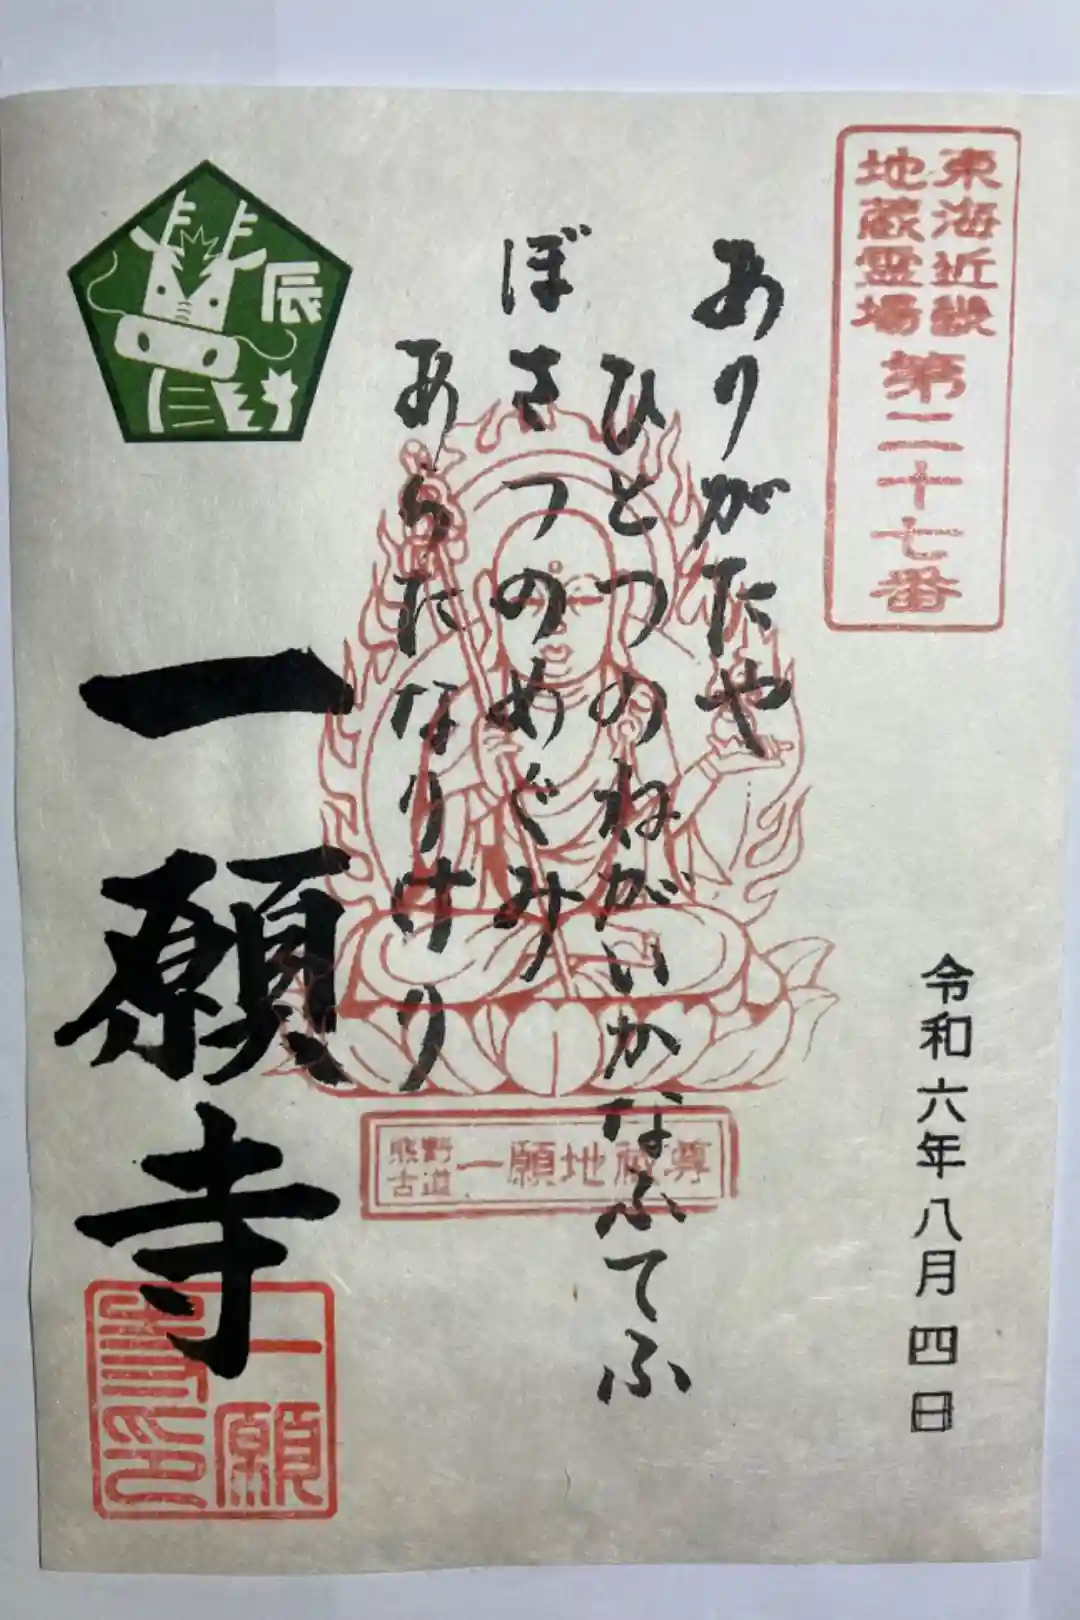 東海近畿
地蔵霊場
第二十七番
令和六年八月四日
ありがたや
ひとつのねがいかなふてふ
ぼさつのめぐみ
あらたなりけり
辰
熊野
古道
一願地蔵尊
一願寺
一願
寺印